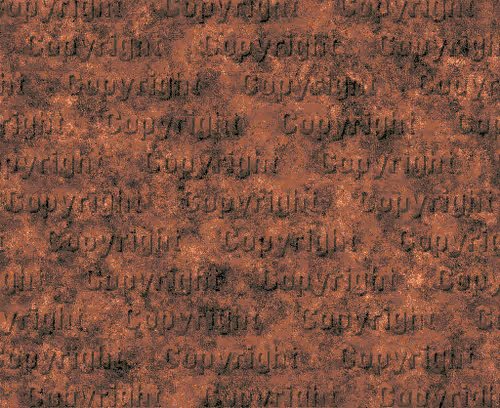 Copyright Copyright Copyright
Copyright Copyright Copyright
Copyright Copyright Copyright
Copyright Copyright Copyright
Copyright Copyright Copyright
Copyright Copyright Copyright
Copyright Copyright Copyright
Copyright Copyright Copyright
Copyright Copyright Copyright
Copyright Copyright Copyright
Copyright Copyright Copyright